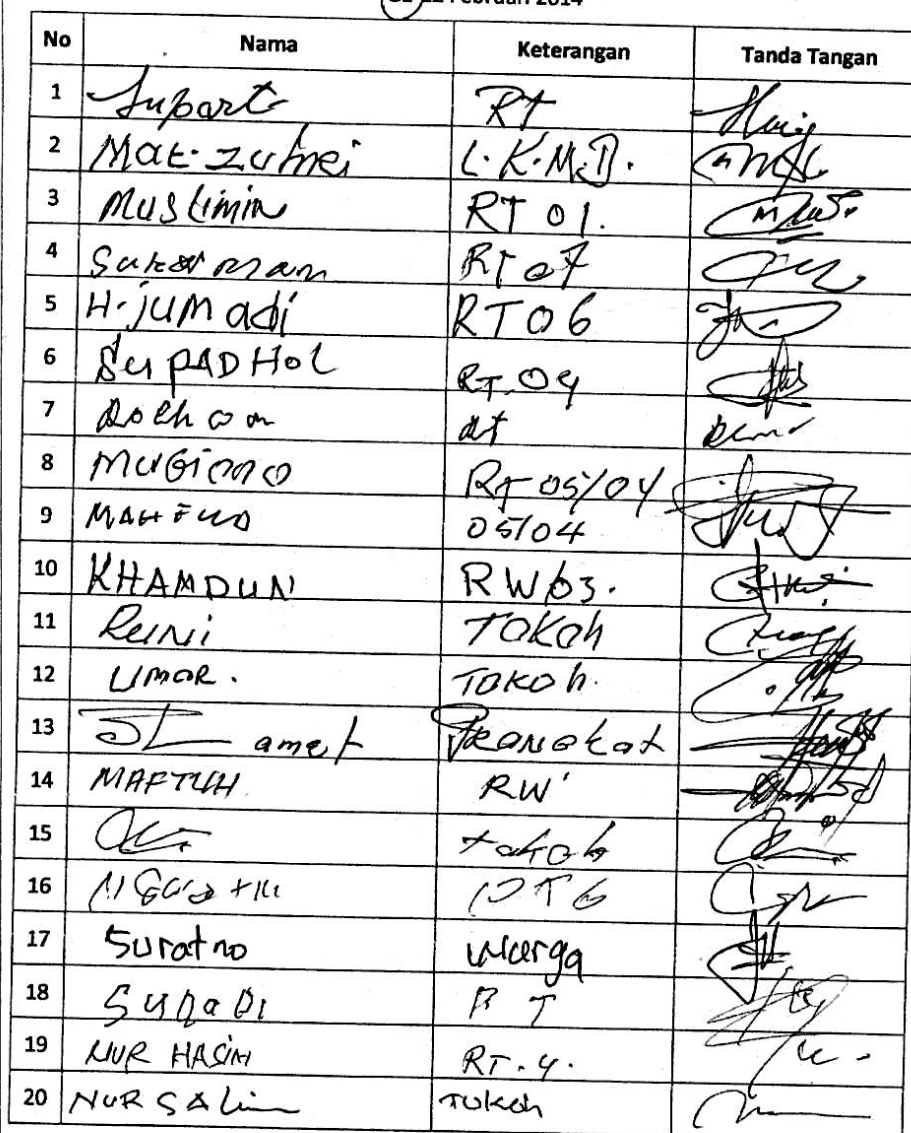 22 Februari 2014
No Nama Keterangan Tanda Tangan
1 Supart RT
2 Mat-zuhei L.K.M.D.
3 Muslimin RT 01.
4 Sukarman RT 07
5 H-jumadi RT 06
6 SupADHOL RT.04
7 Rochcan RT
8 MUGiONO RT 05/04
9 MAHFUD 05/04
10 KHAMDUN RW 03.
11 Runi TOKOh
12 UMAR. TOKOh.
13 SLamet Prangkat
14 MAFTUH RW
15 tokoh
16 RT 6
17 Suratno warga
18 SUnaDi RT
19 NUR HASIM RT.4.
20 NUR SALim TOKOh